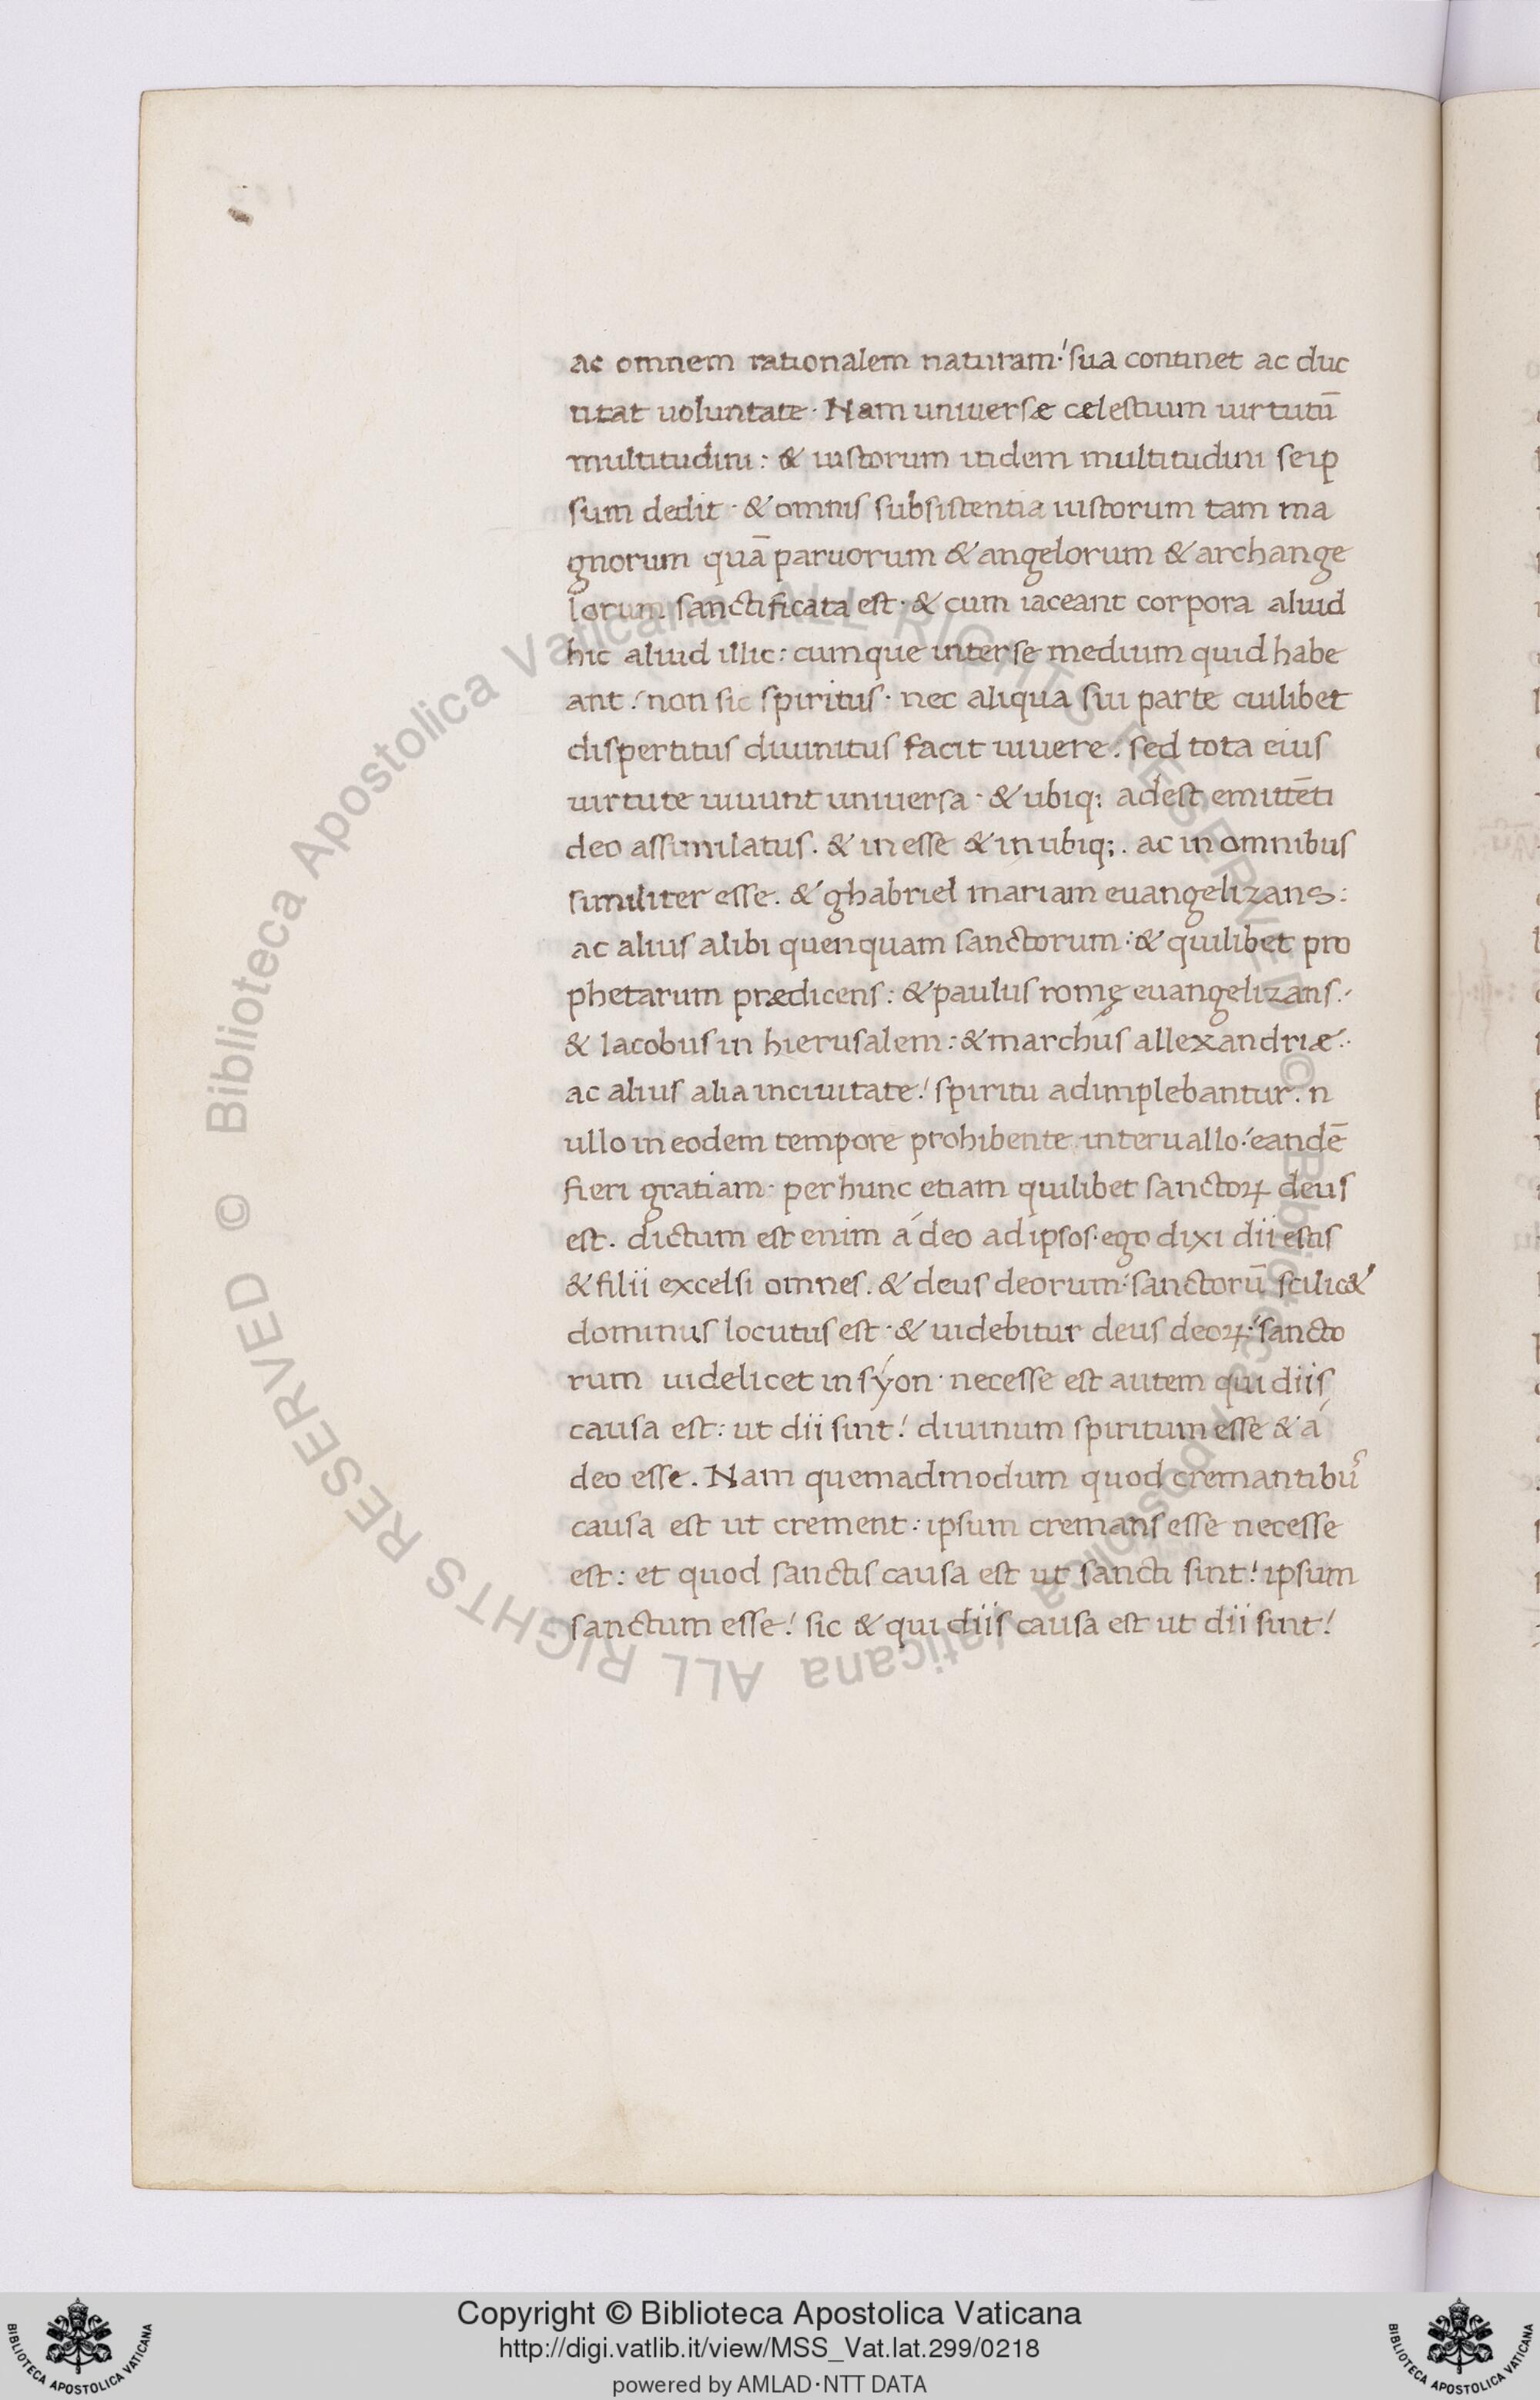 ac omnem rationalem naturam·' sua continet ac duc
titat uoluntate· Nam uniuersæ cælestium uirtutū
multitudini: & iustorum itidem multitudini seip
sum dedit· & omnis subsistentia iustorum tam ma
gnorum quā paruorum & angelorum & archange
lorum sanctificata est· & cum iaceant corpora aliud
hic aliud illic: cumque inter se medium quid habe
ant! non sic spiritus· nec aliqua sui parte cuilibet
dispertitus diuinitus facit uiuere. sed tota eius
uirtute uiuunt uniuersa· & ubiq; adest emittēti
deo assimilatus. & in esse & in ubiq;. ac in omnibus
similiter esse. & ghabriel mariam euangelizans:
ac alius alibi quenquam sanctorum:' & quilibet pro
phetarum prædicens: & paulus romę euangelizans:·
& Iacobus in hierusalem: & marchus allexandriæ:·
ac alius alia in ciuitate! spiritu adimplebantur. n
ullo in eodem tempore prohibente interuallo:' eandē
fieri gratiam· per hunc etiam quilibet sanctoꝝ deus
est. dictum est enim á deo ad ipsos· ego dixi dii estis
& filii excelsi omnes. & deus deorum:' sanctorū scilic&
dominus locutus est· & uidebitur deus deoꝝ:' sancto
rum uidelicet in sýon· necesse est autem qui diis
causa est: ut dii sint! diuinum spiritum esse & á
deo esse. Nam quemadmodum quod cremantibuˢ
causa est ut crement: ipsum cremans esse necesse
est: et quod sanctis causa est ut sancti sint! ipsum
sanctum esse! sic & qui diis causa est ut dii sint!
© Biblioteca Apostolica Vaticana ALL RIGHTS RESERVED © Biblioteca Apostolica Vaticana ALL RIGHTS RESERVED
Copyright © Biblioteca Apostolica Vaticana
http://digi.vatlib.it/view/MSS_Vat.lat.299/0218
powered by AMLAD·NTT DATA
BIBLIOTECA APOSTOLICA VATICANA
BIBLIOTECA APOSTOLICA VATICANA